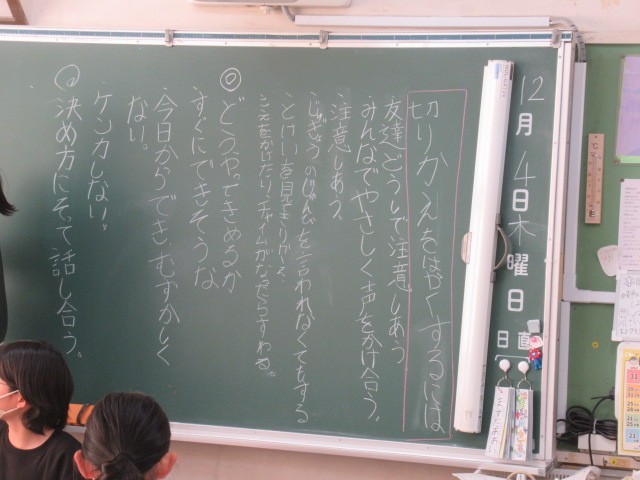 12月4日木曜日
日直
切りかえをはやくするには
友達どうしで注意しあう
みんなでやさしく声をかけ合う。
注意しあう。
じゅぎょうのじゅんびを言われなくてもする
とけいを見ま
こえをかけたり、チャイムがなったらすわる。
◎どうやってきめるか
すぐにできそうな
今日からでき むずかしく
ない。
ケンカしない。
決め方にそって話し合う。